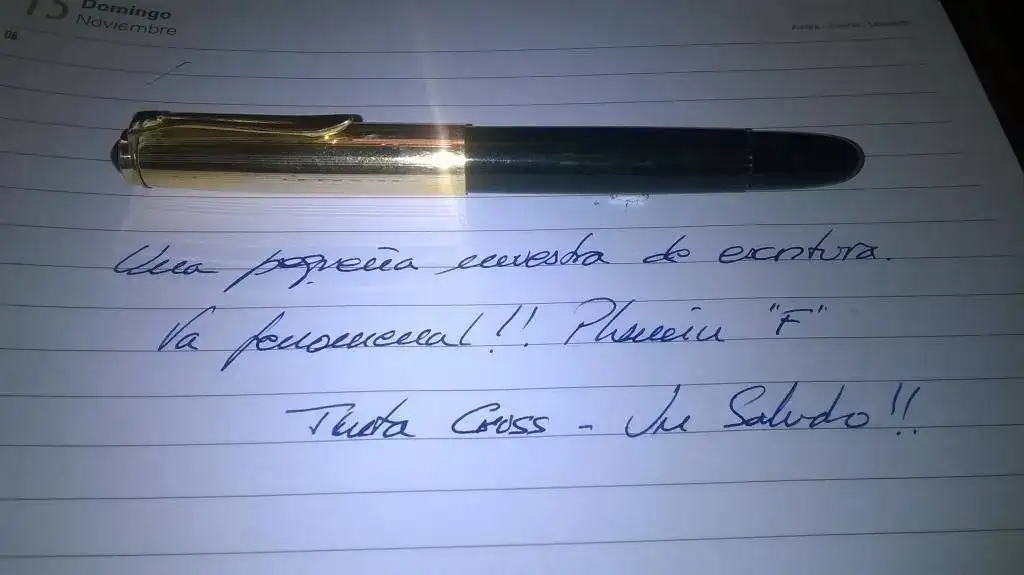 15 Domingo
Noviembre
08
Una pequeña muestra de escritura.
Va fenomenal!! Plumín "F"
Tinta Cross - Un Saludo!!